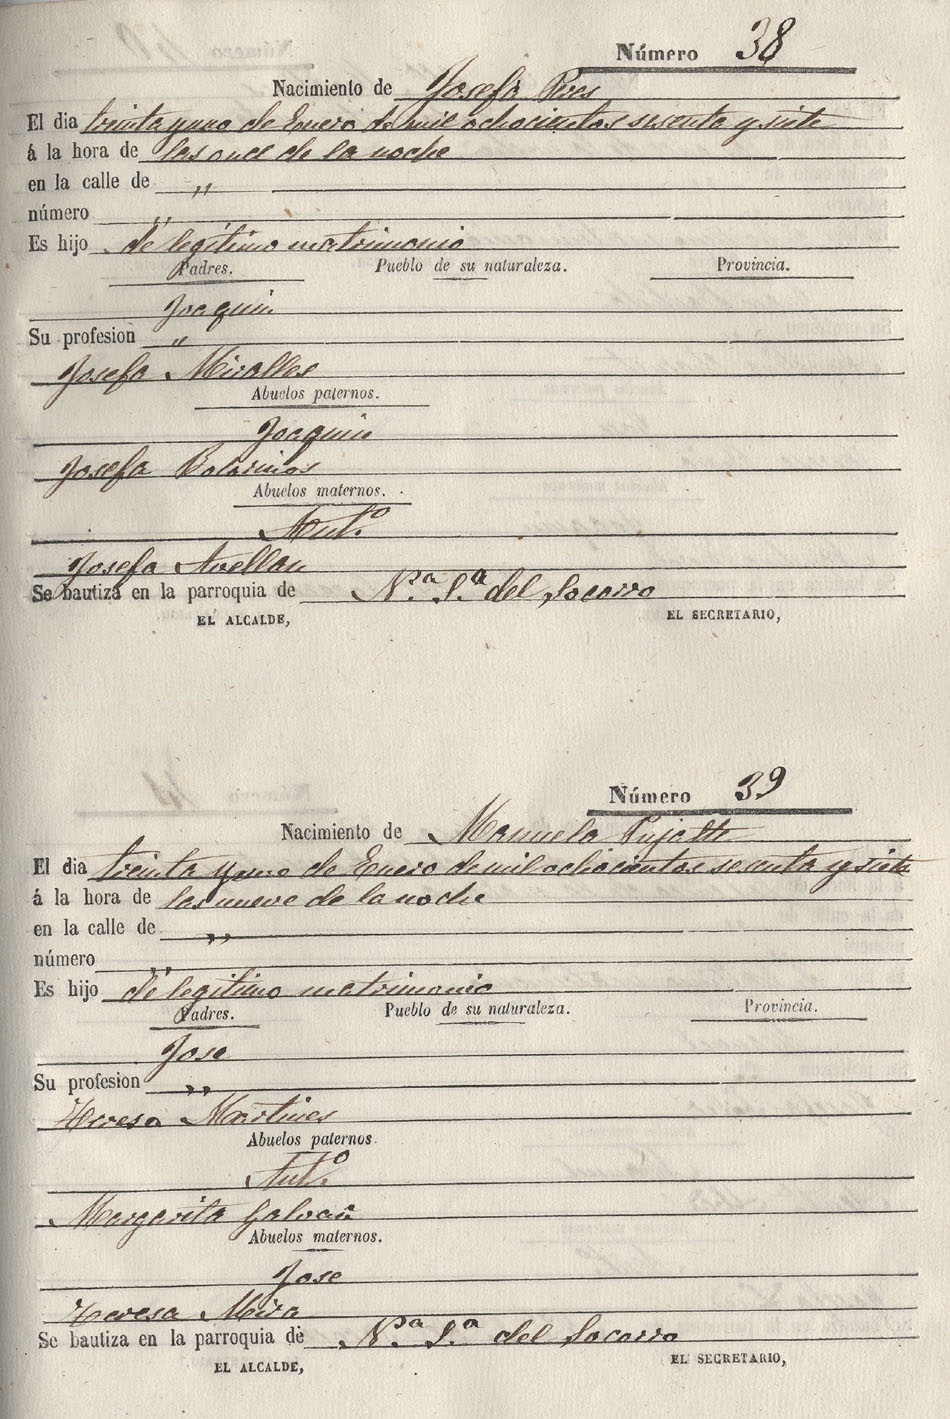 Número 38
Nacimiento de Josefa Pves
El dia treinta y uno de Enero de mil ochocientos sesenta y siete
á la hora de las once de la noche
en la calle de "
número "
Es hijo de legítimo matrimonio
Padres. Pueblo de su naturaleza. Provincia.
Joaquin
Su profesion "
Josefa Miralles
Abuelos paternos.
Joaquin
Josefa Botarinos
Abuelos maternos.
Ant.º
Josefa Avellan
Se bautiza en la parroquia de N.ª S.ª del Socorro
EL ALCALDE, EL SECRETARIO,
Número 39
Nacimiento de Manuela Pujalte
El dia treinta y uno de Enero de mil ochocientos sesenta y siete
á la hora de las nueve de la noche
en la calle de "
número "
Es hijo de legitimo matrimonio
Padres. Pueblo de su naturaleza. Provincia.
Jose
Su profesion "
Teresa Martines
Abuelos paternos.
Ant.º
Margarita Galvañ
Abuelos maternos.
Jose
Teresa Mira
Se bautiza en la parroquia de N.ª S.ª del Socorro
EL ALCALDE, EL SECRETARIO,